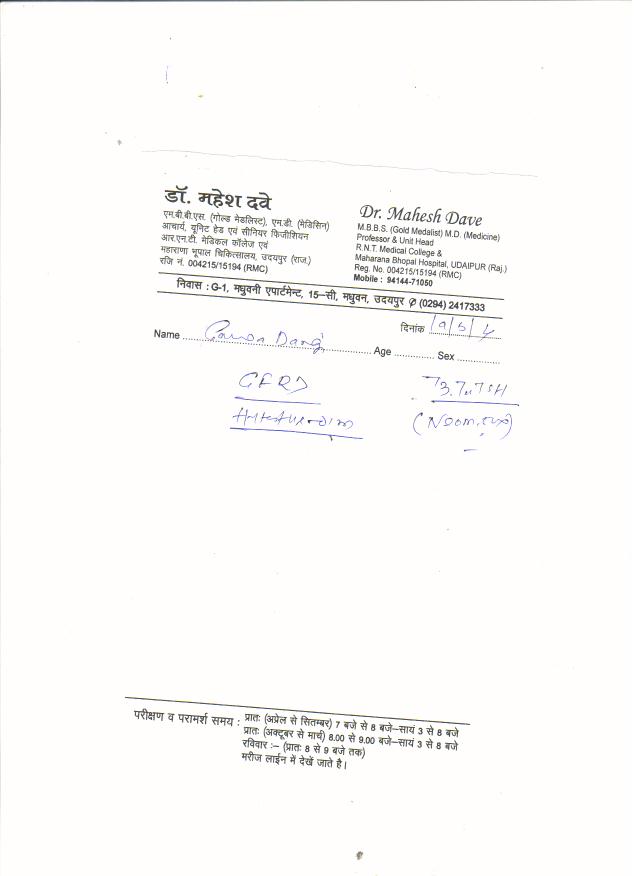 डॉ. महेश दवे
एम.बी.बी.एस. (गोल्ड मेडलिस्ट), एम.डी. (मेडिसिन)
आचार्य, यूनिट हेड एवं सीनियर फिजीशियन
आर.एन.टी. मेडिकल कॉलेज एवं
महाराणा भूपाल चिकित्सालय, उदयपुर (राज.)
रजि नं. 004215/15194 (RMC)
Dr. Mahesh Dave
M.B.B.S. (Gold Medalist) M.D. (Medicine)
Professor & Unit Head
R.N.T. Medical College &
Maharana Bhopal Hospital, UDAIPUR (Raj.)
Reg. No. 004215/15194 (RMC)
Mobile : 94144-71050
निवास : G-1, मधुवनी एपार्टमेन्ट, 15–सी, मधुवन, उदयपुर ✆ (0294) 2417333
दिनांक
Name Age Sex
परीक्षण व परामर्श समय : प्रातः (अप्रेल से सितम्बर) 7 बजे से 8 बजे–सायं 3 से 8 बजे
प्रातः (अक्टूबर से मार्च) 8.00 से 9.00 बजे–सायं 3 से 8 बजे
रविवार :– (प्रातः 8 से 9 बजे तक)
मरीज लाईन में देखें जाते है।